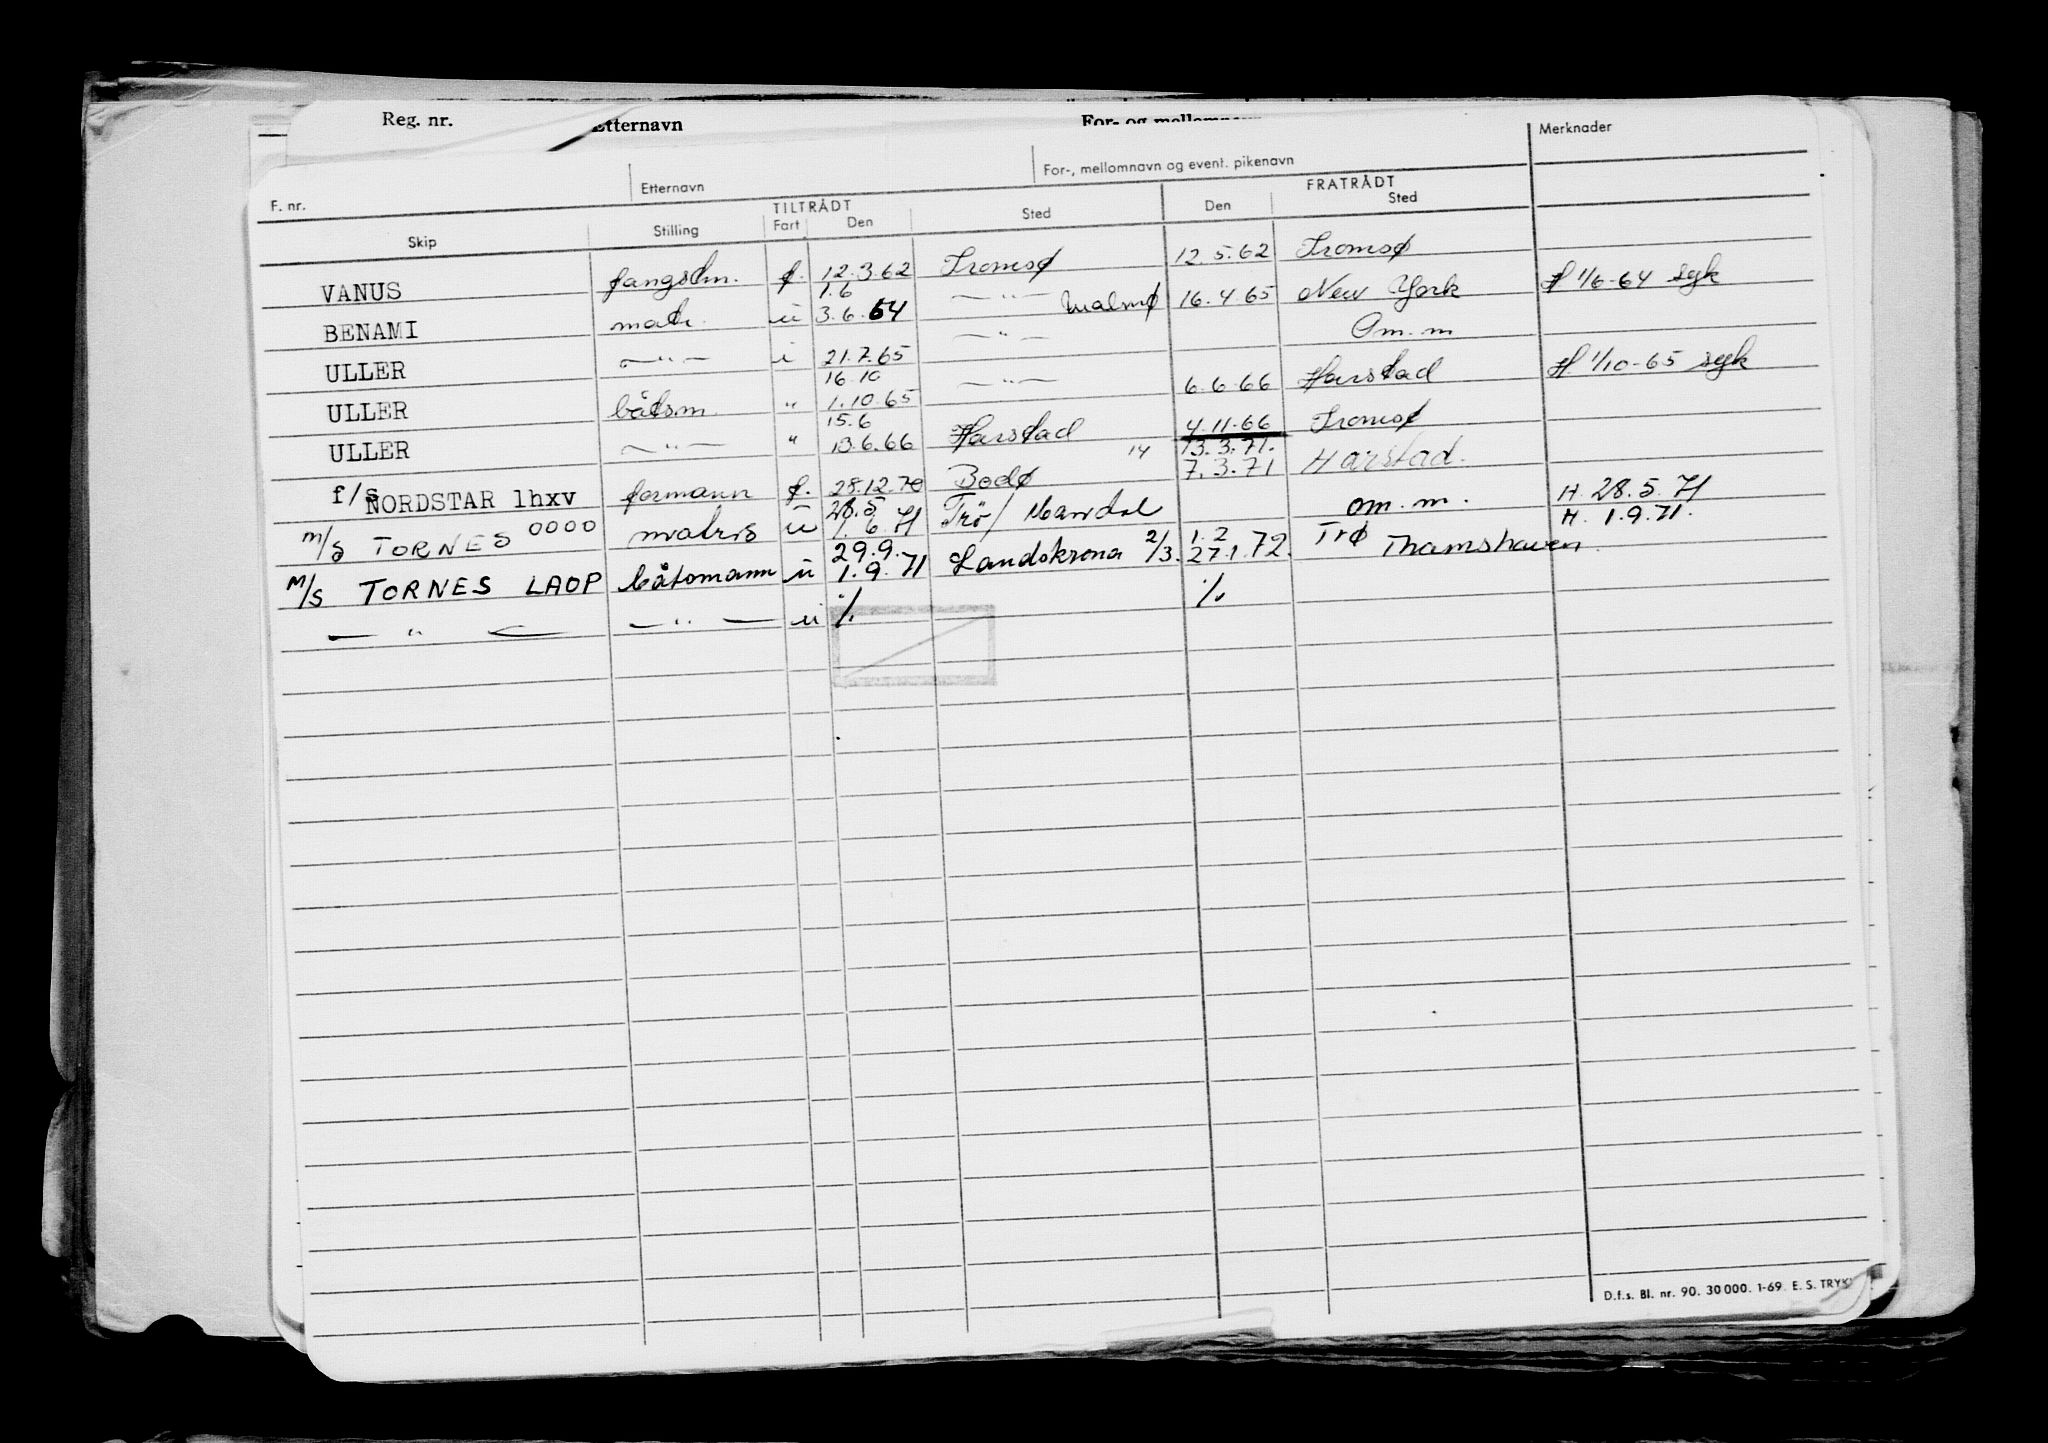 Reg. nr. Etternavn For- og mellomnavn
F. nr. Etternavn For-, mellomnavn og event. pikenavn Merknader
TILTRÅDT FRATRÅDT
Skip Stilling Fart Den Sted Den Sted
VANUS fangstm. f. 12.3.62 Tromsø 12.5.62 Tromsø
1.6
BENAMI matr. u 3.6.64 — " — Malmø 16.4.65 New York H 1/6-64 syk
ULLER — " — i 21.7.65 — " — Om.m
16.10
ULLER båtsm. " 1.10.65 — " — 6.6.66 Harstad H 1/10-65 syk
15.6
ULLER — " — " 13.6.66 Harstad 4.11.66 Tromsø
14 13.3.71.
f/s NORDSTAR lhxv formann f. 28.12.70 Bodø 7.3.71 Harstad.
28.5 H. 28.5.71
m/s TORNES 0000 matros u 1.6.71 Trø/Mandal om.m. H. 1.9.71.
29.9. 2/3. 1.2 Trø
M/S TORNES LAOP båtsmann u 1.9.71 Landskrona 27.1.72. Thamshaven
— " — — " — u ./. ./.
D.f.s. Bl. nr. 90. 30 000. 1-69. E. S. TRYK